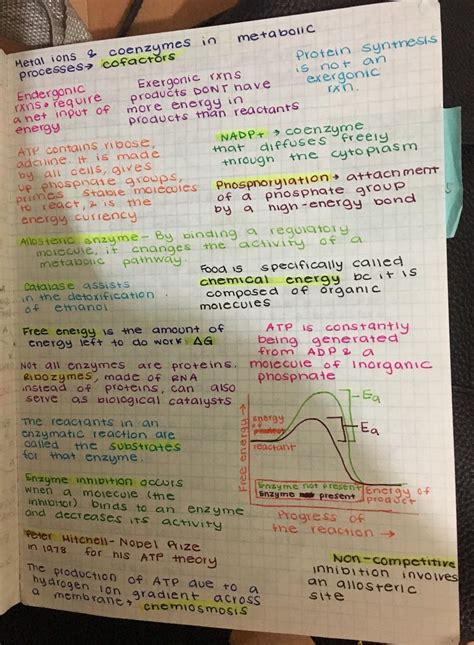 Metal ions & coenzymes in metabolic
processes → cofactors
Protein synthesis
is not an
exergonic
rxn.
Endergonic
rxns → require
a net input of
energy
Exergonic rxns
products DON'T have
more energy in
products than reactants
ATP contains ribose,
adenine. It is made
by all cells, gives
up phosphate groups,
primes stable molecules
to react, & is the
energy currency
NADP+ → coenzyme
that diffuses freely
through the cytoplasm
Phosphorylation → attachment
of a phosphate group
by a high-energy bond
Allosteric enzyme - By binding a regulatory
molecule, it changes the activity of a
metabolic pathway.
Catalase assists
in the detoxification
of ethanol
Food is specifically called
chemical energy bc it is
composed of organic
molecules
Free energy is the amount of
energy left to do work ΔG
ATP is constantly
being generated
from ADP & a
molecule of inorganic
phosphate
Not all enzymes are proteins.
Ribozymes, made of RNA
instead of proteins, can also
serve as biological catalysts
The reactants in an
enzymatic reaction are
called the substrates
for that enzyme.
Free energy →
energy
of
reactant
Ea
Ea
Enzyme not present
Enzyme present
Energy of
product
Progress of
the reaction →
Enzyme inhibition occurs
when a molecule (the
inhibitor) binds to an enzyme
and decreases its activity
Peter Mitchell - Nobel Prize
in 1978 for his ATP theory
The production of ATP due to a
hydrogen ion gradient across
a membrane → chemiosmosis
Non-competitive
inhibition involves
an allosteric
site